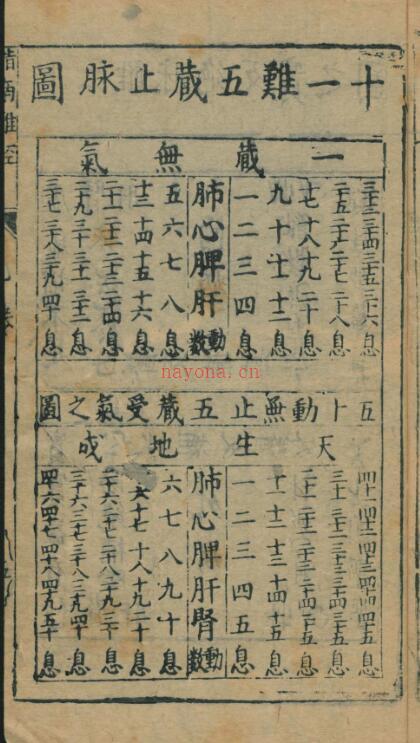 十一難五蔵止脉圖
一蔵無氣
三十三三十四三十五三十六息
二十五二十六二十七二十八息
十七十八十九二十息
九十十一十二息
一二三四息
肺心脾肝動數
五六七八息
十三十四十五十六息
二十一二十二二十三二十四息
二十九三十三十一三十二息
三十七三十八三十九四十息
五十動無止五蔵受氣之圖
天生地成
四十一四十二四十三四十四四十五息
三十一三十二三十三三十四三十五息
二十一二十二二十三二十四二十五息
十一十二十三十四十五息
一二三四五息
肺心脾肝腎動數
六七八九十息
十六十七十八十九二十息
二十六二十七二十八二十九三十息
三十六三十七三十八三十九四十息
四十六四十七四十八四十九五十息
nayona.cn